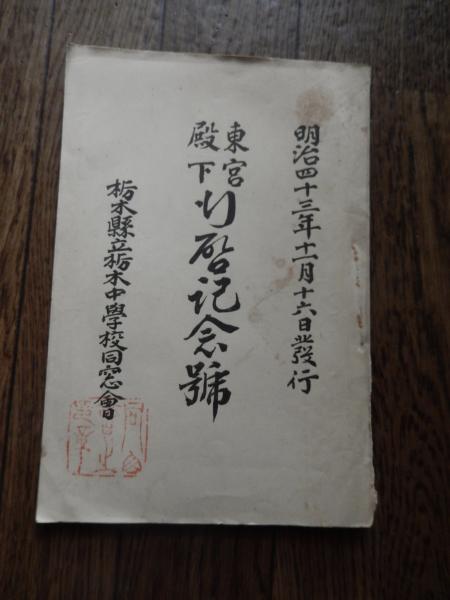 明治四十三年十二月十六日発行
東宮殿下行啓記念號
栃木縣立栃木中學校同窓會